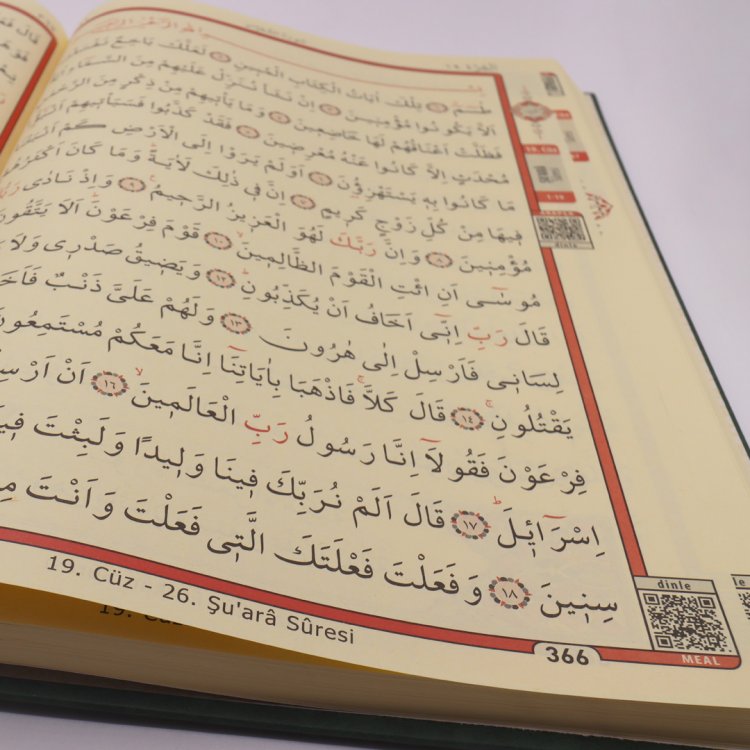 الجزء ١٩
طٰسٓمٓ ﴿١﴾ تِلْكَ اٰيَاتُ الْكِتَابِ الْمُبِينِ ﴿٢﴾ لَعَلَّكَ بَاخِعٌ
اَلَّا يَكُونُوا مُؤْمِنِينَ ﴿٣﴾ اِنْ نَشَأْ نُنَزِّلْ عَلَيْهِمْ مِنَ السَّمَٓاءِ
فَظَلَّتْ اَعْنَاقُهُمْ لَهَا خَاضِعِينَ ﴿٤﴾ وَمَا يَأْتِيهِمْ مِنْ ذِكْرٍ مِنَ
مُحْدَثٍ اِلَّا كَانُوا عَنْهُ مُعْرِضِينَ ﴿٥﴾ فَقَدْ كَذَّبُوا فَسَيَأْتِيهِمْ
مَا كَانُوا بِهِ يَسْتَهْزِؤُنَ ﴿٦﴾ اَوَلَمْ يَرَوْا اِلَى الْاَرْضِ كَمْ
فِيهَا مِنْ كُلِّ زَوْجٍ كَرِيمٍ ﴿٧﴾ اِنَّ فِي ذٰلِكَ لَاٰيَةً وَمَا كَانَ
مُؤْمِنِينَ ﴿٨﴾ وَاِنَّ رَبَّكَ لَهُوَ الْعَزِيزُ الرَّحِيمُ ﴿٩﴾ وَاِذْ نَادٰى
مُوسٰٓى اَنِ ائْتِ الْقَوْمَ الظَّالِمِينَ ﴿١٠﴾ قَوْمَ فِرْعَوْنَ اَلَا يَتَّقُونَ
قَالَ رَبِّ اِنِّٓي اَخَافُ اَنْ يُكَذِّبُونِ ﴿١٢﴾ وَيَضِيقُ صَدْرِي وَلَا
لِسَانِي فَاَرْسِلْ اِلٰى هٰرُونَ ﴿١٣﴾ وَلَهُمْ عَلَيَّ ذَنْبٌ
يَقْتُلُونِ ﴿١٤﴾ قَالَ كَلَّا فَاذْهَبَا بِاٰيَاتِنَٓا اِنَّا مَعَكُمْ مُسْتَمِعُونَ
فِرْعَوْنَ فَقُولَٓا اِنَّا رَسُولُ رَبِّ الْعَالَمِينَ ﴿١٦﴾ اَنْ
اِسْرَٓائِيلَ ﴿١٧﴾ قَالَ اَلَمْ نُرَبِّكَ فِينَا وَلِيدًا وَلَبِثْتَ
سِنِينَ ﴿١٨﴾ وَفَعَلْتَ فَعْلَتَكَ الَّتِي فَعَلْتَ وَاَنْتَ
19. Cüz - 26. Şu'arâ Sûresi
366
19. Cüz
dinle
dinle
MEAL